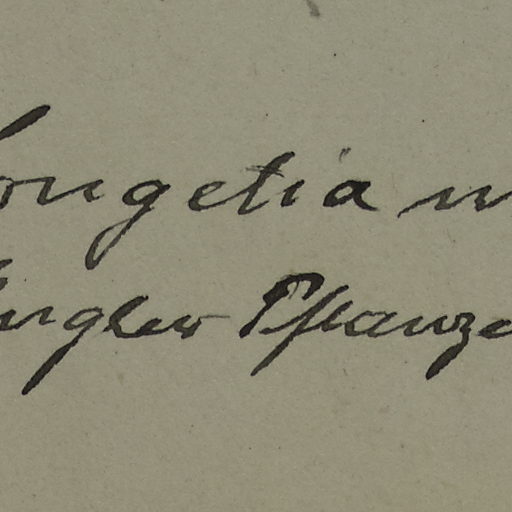 ongetia
Engler Pflanze